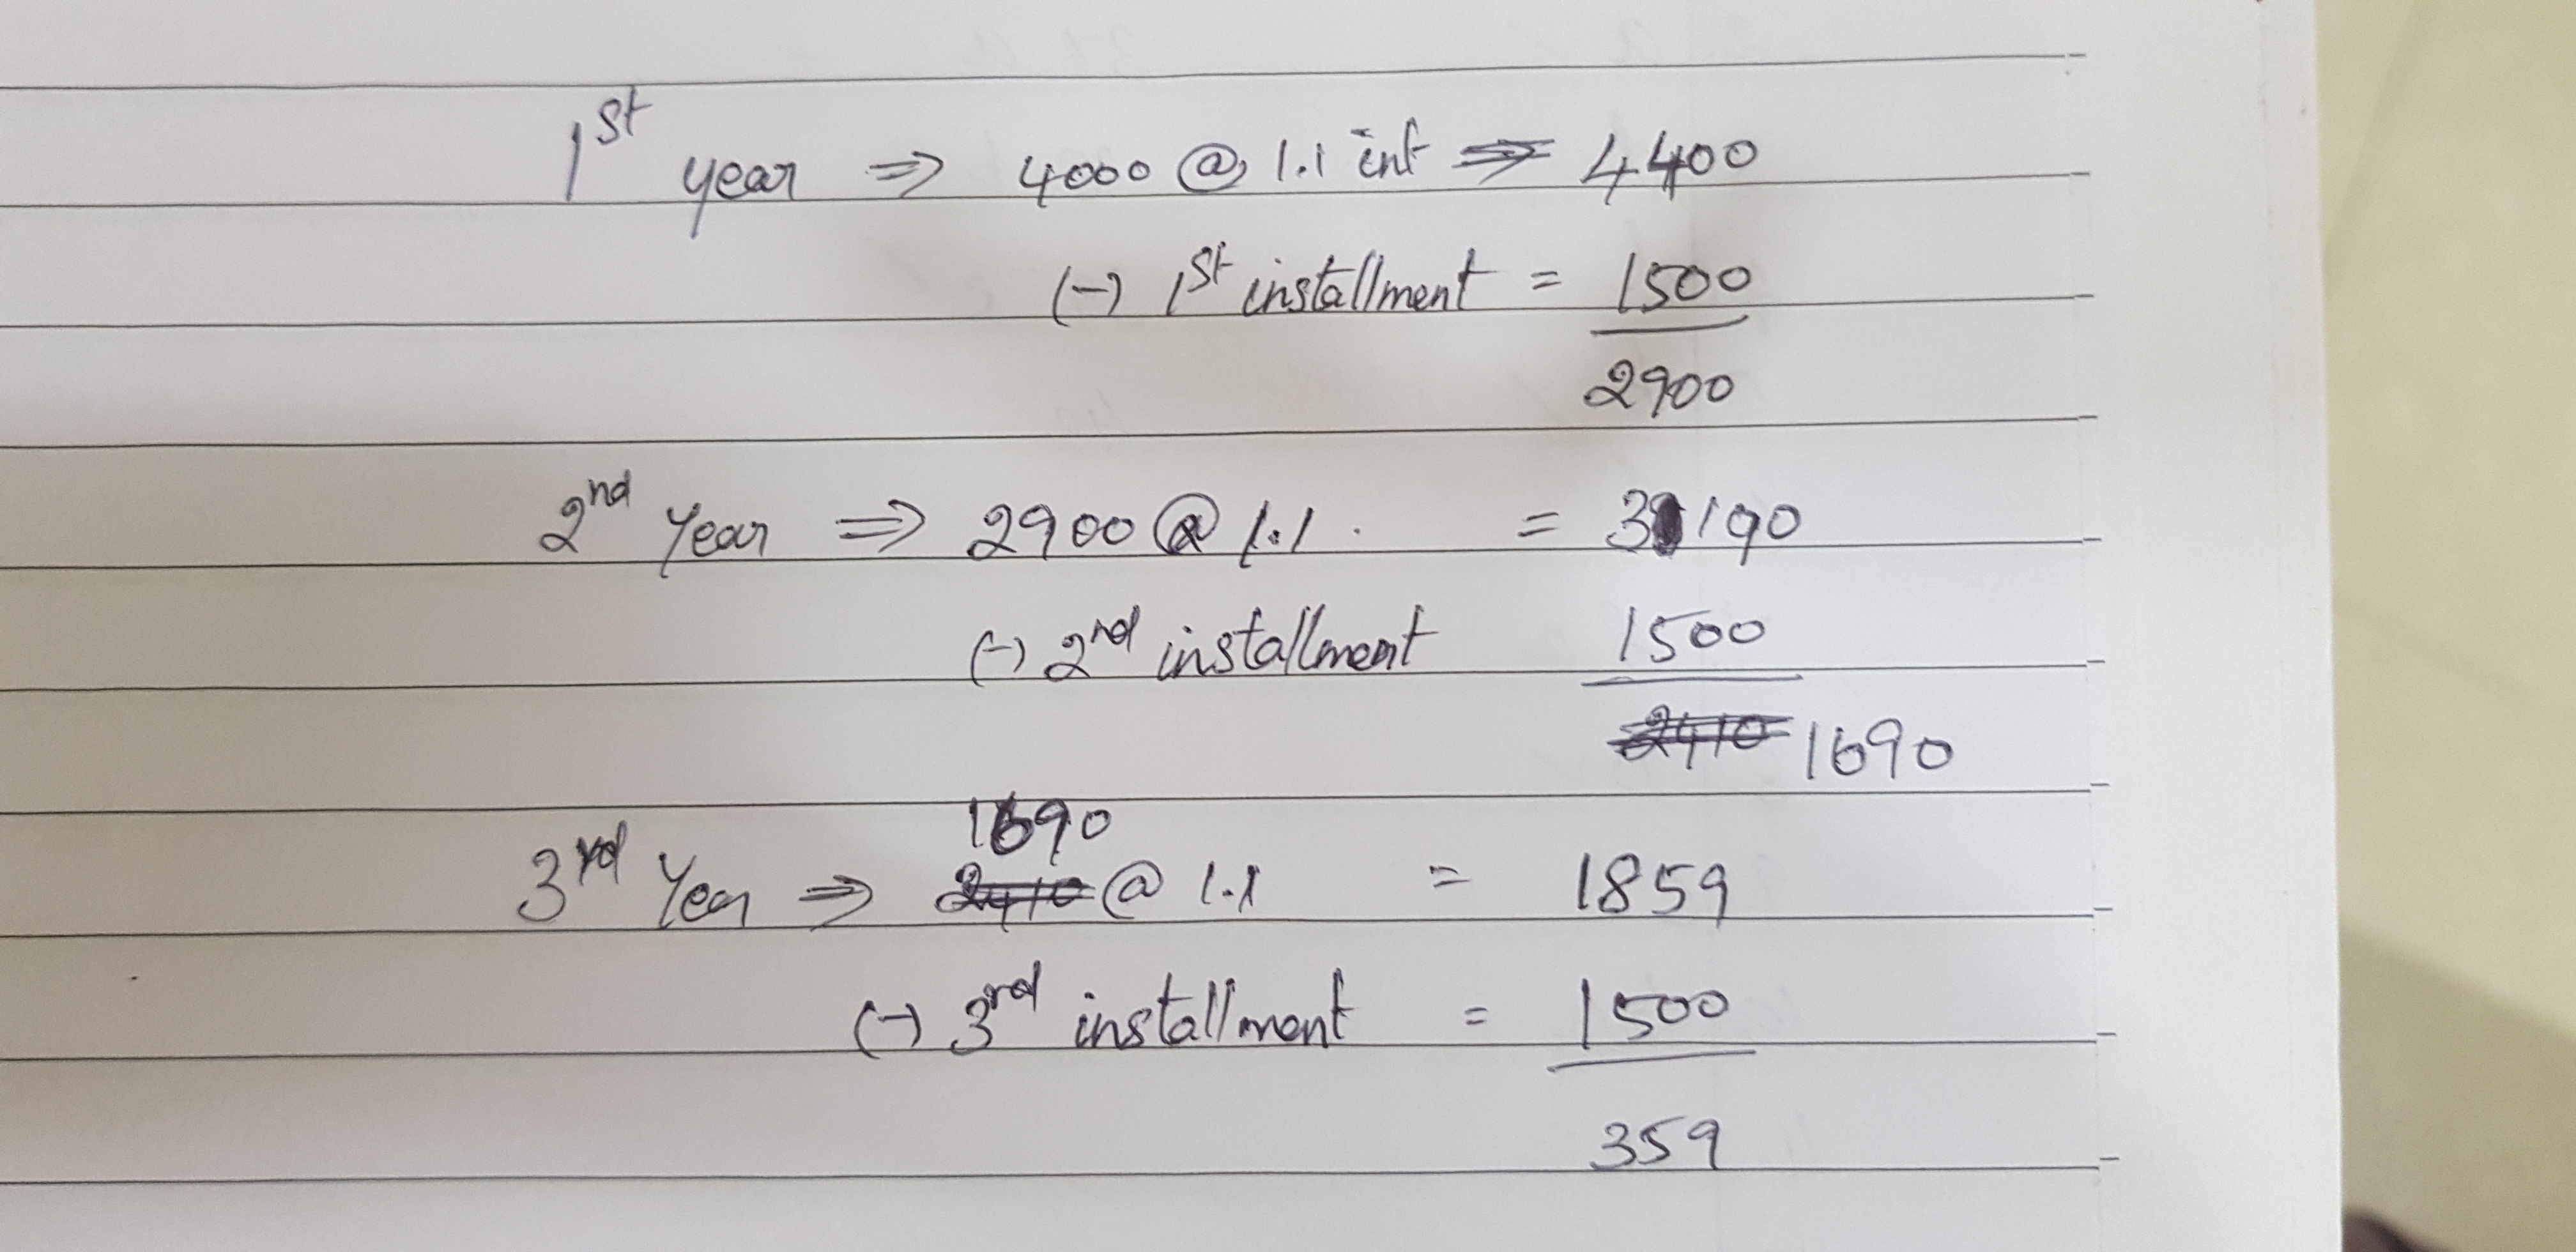 1st year ⇒ 4000 @ 1.1 int ⇒ 4400
(-) 1st installment = 1500
2900
2nd Year ⇒ 2900 @ 1.1 . = 3190
(-) 2nd installment 1500
2410 1690
1690
3rd Year ⇒ 2410 @ 1.1 = 1859
(-) 3rd installment = 1500
359